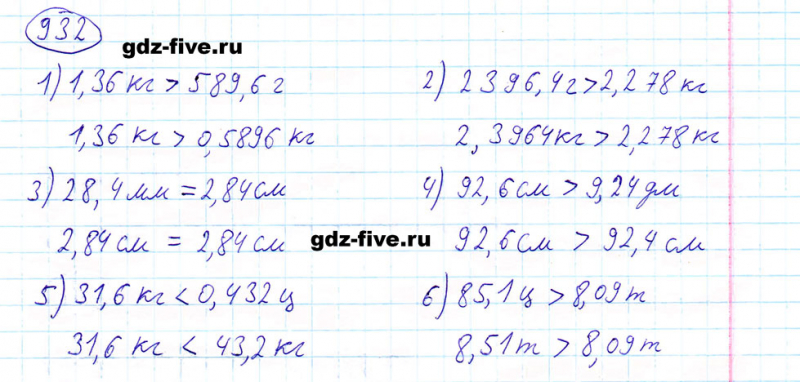 932
gdz-five.ru
1) 1,36 кг > 589,6 г
1,36 кг > 0,5896 кг
2) 2396,4 г > 2,278 кг
2,3964 кг > 2,278 кг
3) 28,4 мм = 2,84 см
2,84 см = 2,84 см
gdz-five.ru
4) 92,6 см > 9,24 дм
92,6 см > 92,4 см
5) 31,6 кг < 0,432 ц
31,6 кг < 43,2 кг
6) 85,1 ц > 8,09 т
8,51 т > 8,09 т